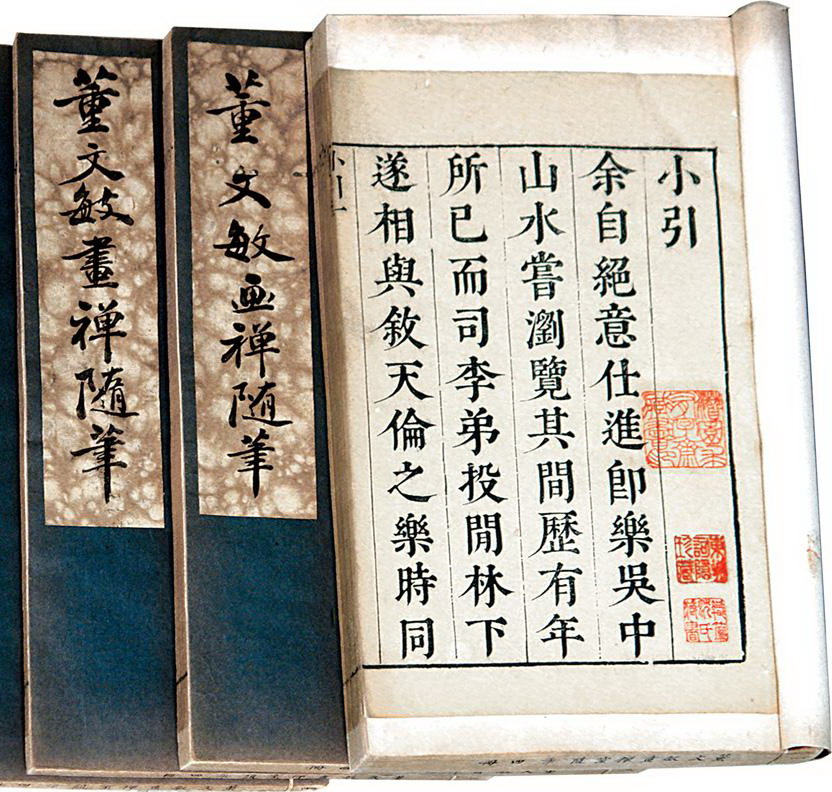 小引
余自絕意仕進卽樂吳中
山水嘗瀏覽其間歷有年
所已而司李弟投閒林下
遂相與敘天倫之樂時同
董文敏画禅随筆
董文敏畫禅随筆